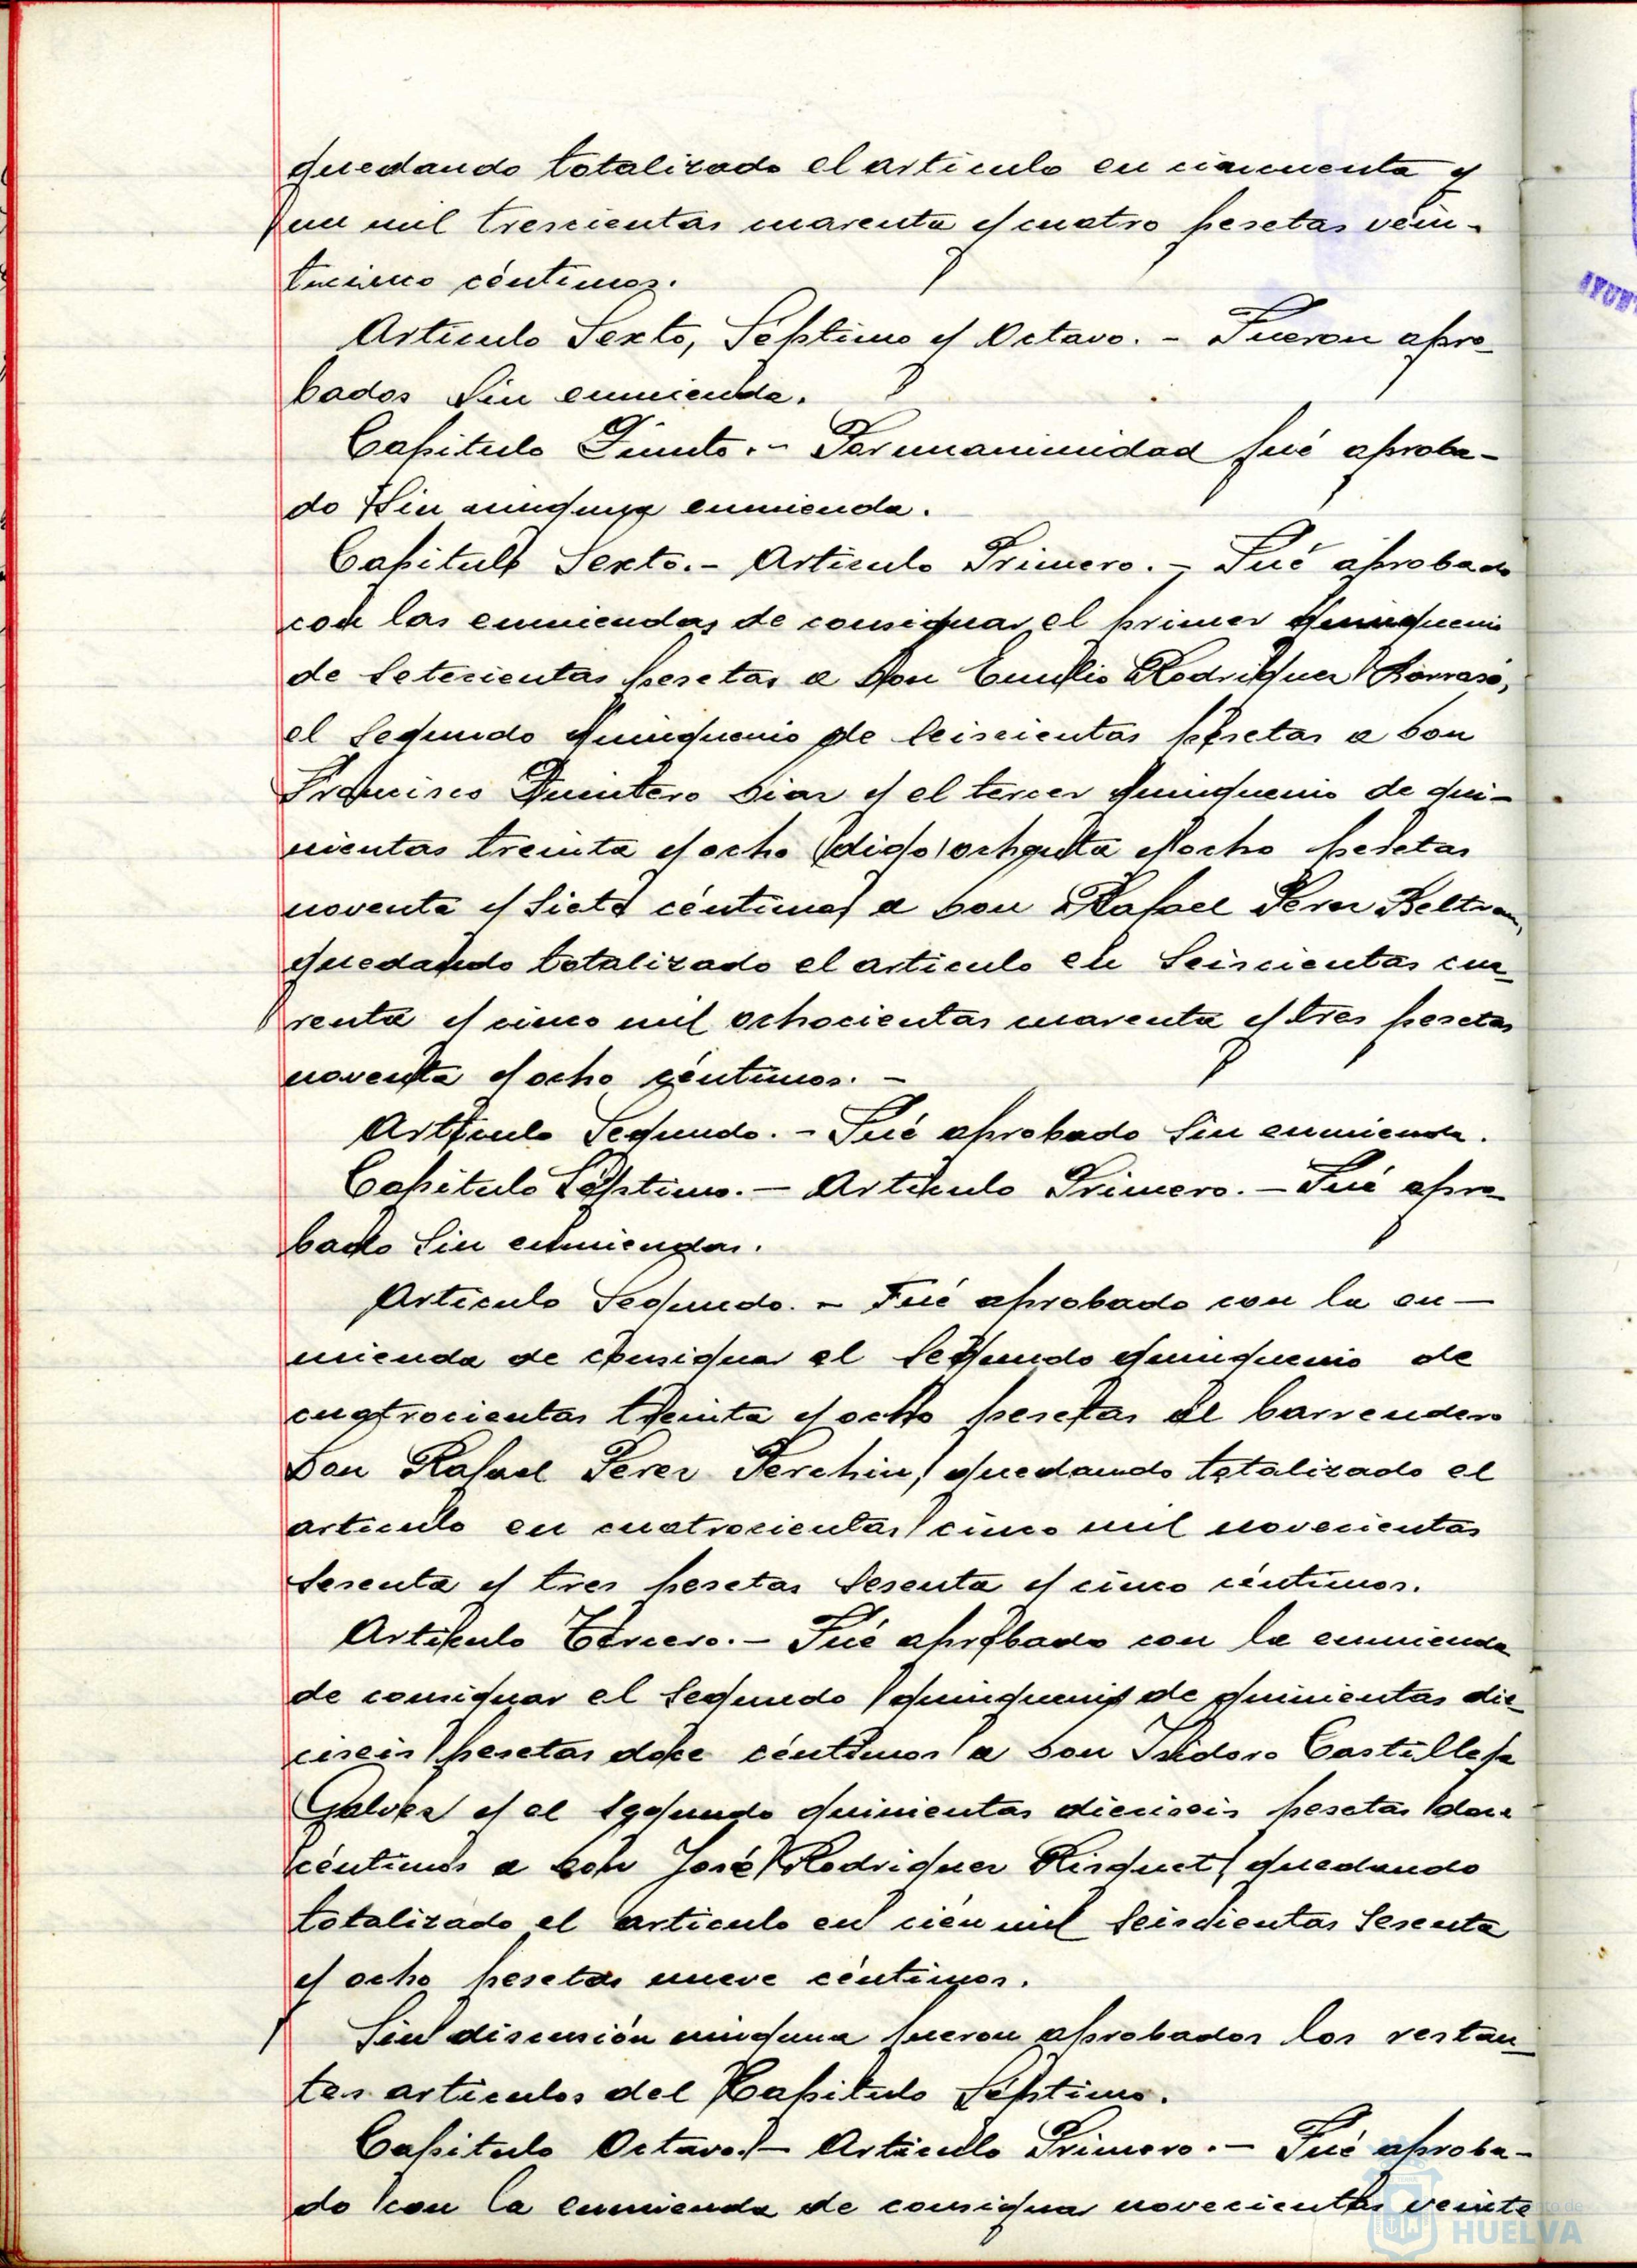 quedando totalizado el artículo en cincuenta y
un mil trescientas cuarenta y cuatro pesetas vein-
ticinco céntimos.
Artículo Sexto, Séptimo y Octavo. - Fueron apro-
bados sin enmienda.
Capítulo Quinto. - Por unanimidad fué aproba-
do sin ninguna enmienda.
Capítulo Sexto. - Artículo Primero. - Fué aprobado
con las enmiendas de consignar el primer quinquenio
de setecientas pesetas a Don Emilio Rodriguez
el segundo quinquenio de seiscientas pesetas a Don
Francisco Quintero Diaz y el tercer quinquenio de qui-
nientas treinta y ocho (digo) ochenta y ocho pesetas
noventa y siete céntimos a Don Rafael Perez Beltran,
quedando totalizado el artículo en seiscientas cua-
renta y cinco mil ochocientas cuarenta y tres pesetas
noventa y ocho céntimos. -
Artículo Segundo. - Fué aprobado sin enmienda.
Capítulo Séptimo. - Artículo Primero. - Fué apro-
bado sin enmiendas.
Artículo Segundo. - Fué aprobado con la en-
mienda de consignar el segundo quinquenio de
cuatrocientas treinta y ocho pesetas al barrendero
Don Rafael Perez Perchin, quedando totalizado el
artículo en cuatrocientas cinco mil novecientas
sesenta y tres pesetas sesenta y cinco céntimos.
Artículo Tercero. - Fué aprobado con la enmienda
de consignar el segundo quinquenio de quinientas die-
ciseis pesetas doce céntimos a Don Isidoro Castilleja
Galvez y el segundo quinientas dieciseis pesetas doce
céntimos a Don José Rodriguez Risquet, quedando
totalizado el artículo en cien mil seiscientas sesenta
y ocho pesetas nueve céntimos.
Sin discusión ninguna fueron aprobados los restan-
tes artículos del Capítulo Séptimo.
Capítulo Octavo. - Artículo Primero. - Fué aproba-
do con la enmienda de consignar novecientas veinte
HUELVA